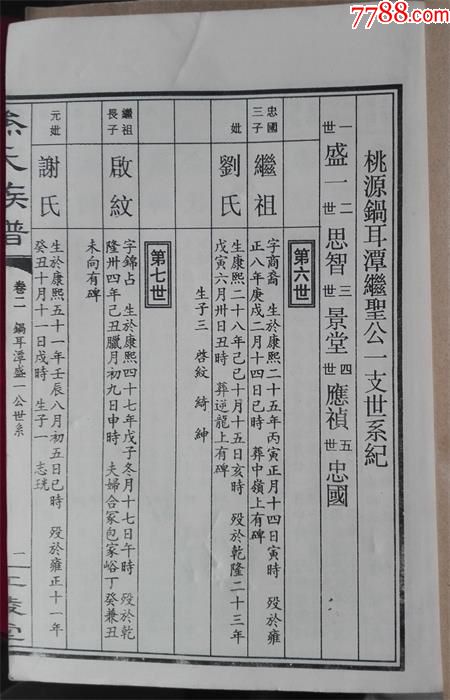 7788.com
中国收藏热线
桃源鍋耳潭繼聖公一支世系紀
一世 盛一 二世 思智 三世 景堂 四世 應禎 五世 忠國
第六世
忠國三子
繼祖
字商裔 生於康熙二十五年丙寅正月十四日寅時 歿於雍
正八年庚戌二月十四日巳時 葬中嶺上有碑
妣
劉氏
生康熙二十八年己巳十月十五日亥時 歿於乾隆二十三年
戊寅六月卅日丑時 葬逆龍上有碑
生子三 啓紋 綺 紳
第七世
繼祖長子
啟紋
字錦占 生於康熙四十七年戊子冬月十七日午時 歿於乾
隆卅四年己丑臘月初九日申時 夫婦合冢包家峪丁癸兼丑
未向有碑
元妣
謝氏
生於康熙五十一年壬辰八月初五日巳時 歿於雍正十一年
癸丑十月十一日戌時 生子一 志珖
氏族譜
卷二 鍋耳潭盛一公世系
一